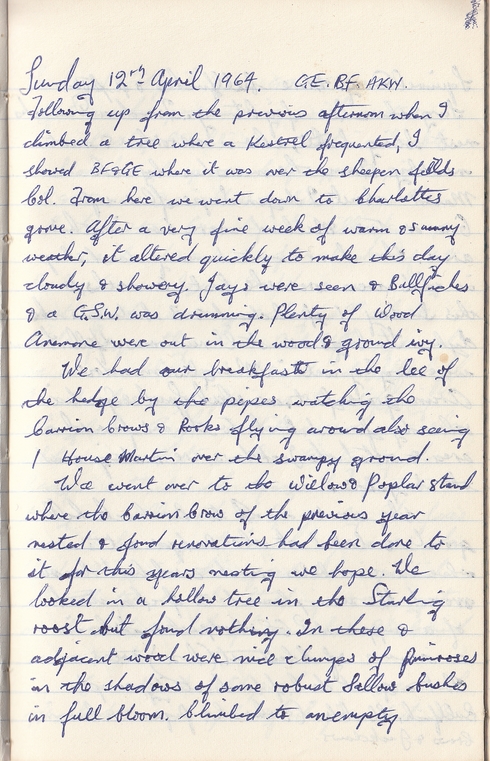 Sunday 12th April 1964. G.E. BF. AKW.
Following up from the previous afternoon when I
climbed a tree where a Kestrel frequented, I
showed BF&GE where it was over the sheepen fields
Col. From here we went down to Charlottes
grove. After a very fine week of warm & sunny
weather, it altered quickly to make this day
cloudy & showery. Jays were seen & Bullfinches
& a G.S.W. was drumming. Plenty of Wood
Anemone were out in the wood & ground ivy.
We had our breakfasts in the lee of
the hedge by the pipes watching the
Carrion Crows & Rooks flying around also seeing
1 House Martin over the swampy ground.
We went over to the Willow & Poplar stand
where the Carrion Crow of the previous year
nested & fond renovations had been done to
it for this years nesting we hope. We
looked in a hollow tree in the Starling
roost but fond nothing. In these &
adjacent wood were nice clumps of primroses
in the shadows of some robust Sallow bushes
in full bloom. Climbed to an empty